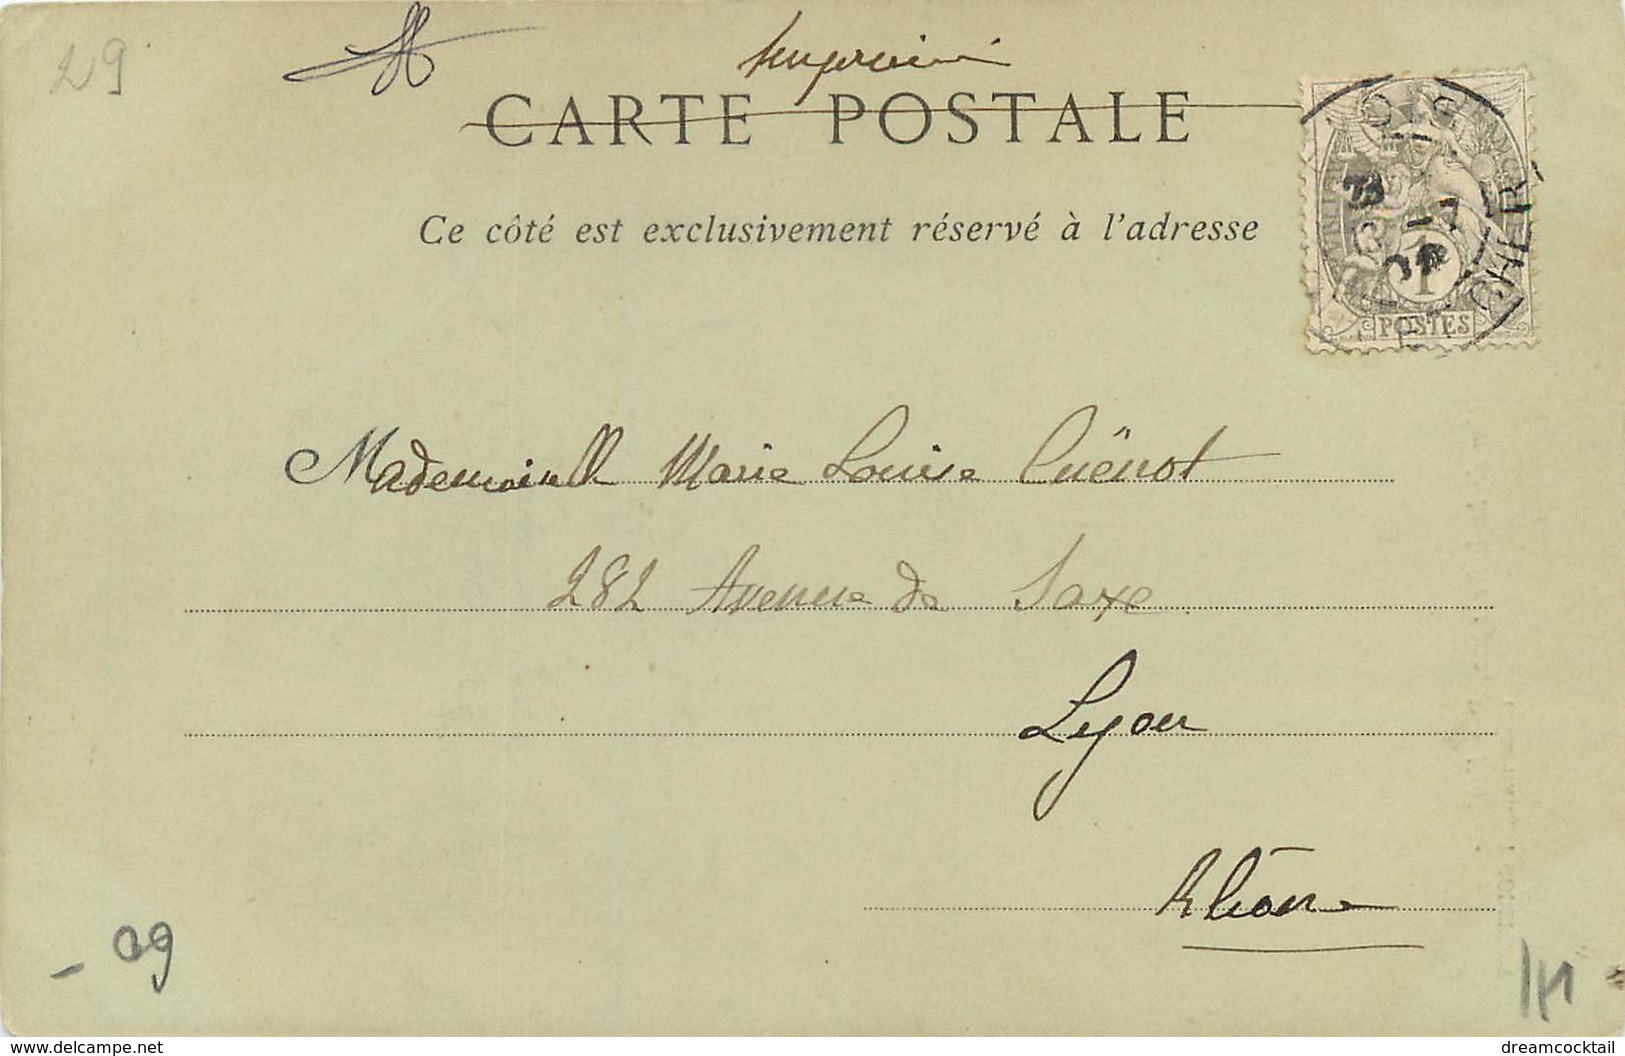 29
CARTE POSTALE
Ce côté est exclusivement réservé à l'adresse
1
POSTES
Mademoiselle Marie Louise Cuënot
282 Avenue de Saxe
Lyon
Rhône
09
delcampe.net
dreamcocktail